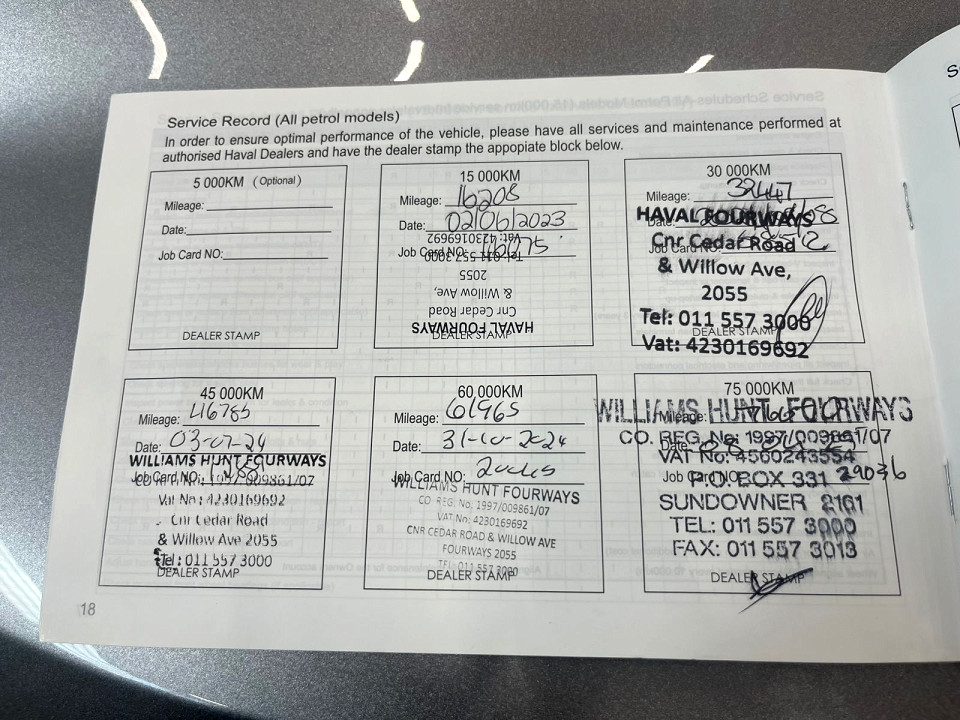 Service Record (All petrol models)
In order to ensure optimal performance of the vehicle, please have all services and maintenance performed at
authorised Haval Dealers and have the dealer stamp the appopiate block below.
5 000KM (Optional)
Mileage:
Date:
Job Card NO:
DEALER STAMP
15 000KM
Mileage: 16208
Date: 02/06/2023
Vat: 4230169692
Job Card NO:
Tel: 011 557 3000
2055
& Willow Ave,
Cnr Cedar Road
HAVAL FOURWAYS
DEALER STAMP
30 000KM
Mileage: 32447
HAVAL FOURWAYS
Date:
Cnr Cedar Road
Job Card NO:
& Willow Ave,
2055
Tel: 011 557 3000
DEALER STAMP
Vat: 4230169692
45 000KM
Mileage: 46785
Date: 03-07-24
WILLIAMS HUNT FOURWAYS
Job Card NO:
CO REG. No: 1997/009861/07
Vat No: 4230169692
Cnr Cedar Road
& Willow Ave 2055
Tel: 011 557 3000
DEALER STAMP
60 000KM
Mileage: 61965
Date: 31-10-2024
Job Card NO:
WILLIAMS HUNT FOURWAYS
CO REG. No; 1997/009861/07
VAT No; 4230169692
CNR CEDAR ROAD & WILLOW AVE
FOURWAYS 2055
TEL: 011 557 3000
DEALER STAMP
75 000KM
Mileage:
WILLIAMS HUNT FOURWAYS
CO. REG. No: 1997/009861/07
Date:
VAT No: 4560243554
Job Card NO: 29036
P.O. BOX 331
SUNDOWNER 2161
TEL: 011 557 3000
FAX: 011 557 3013
DEALER STAMP
18